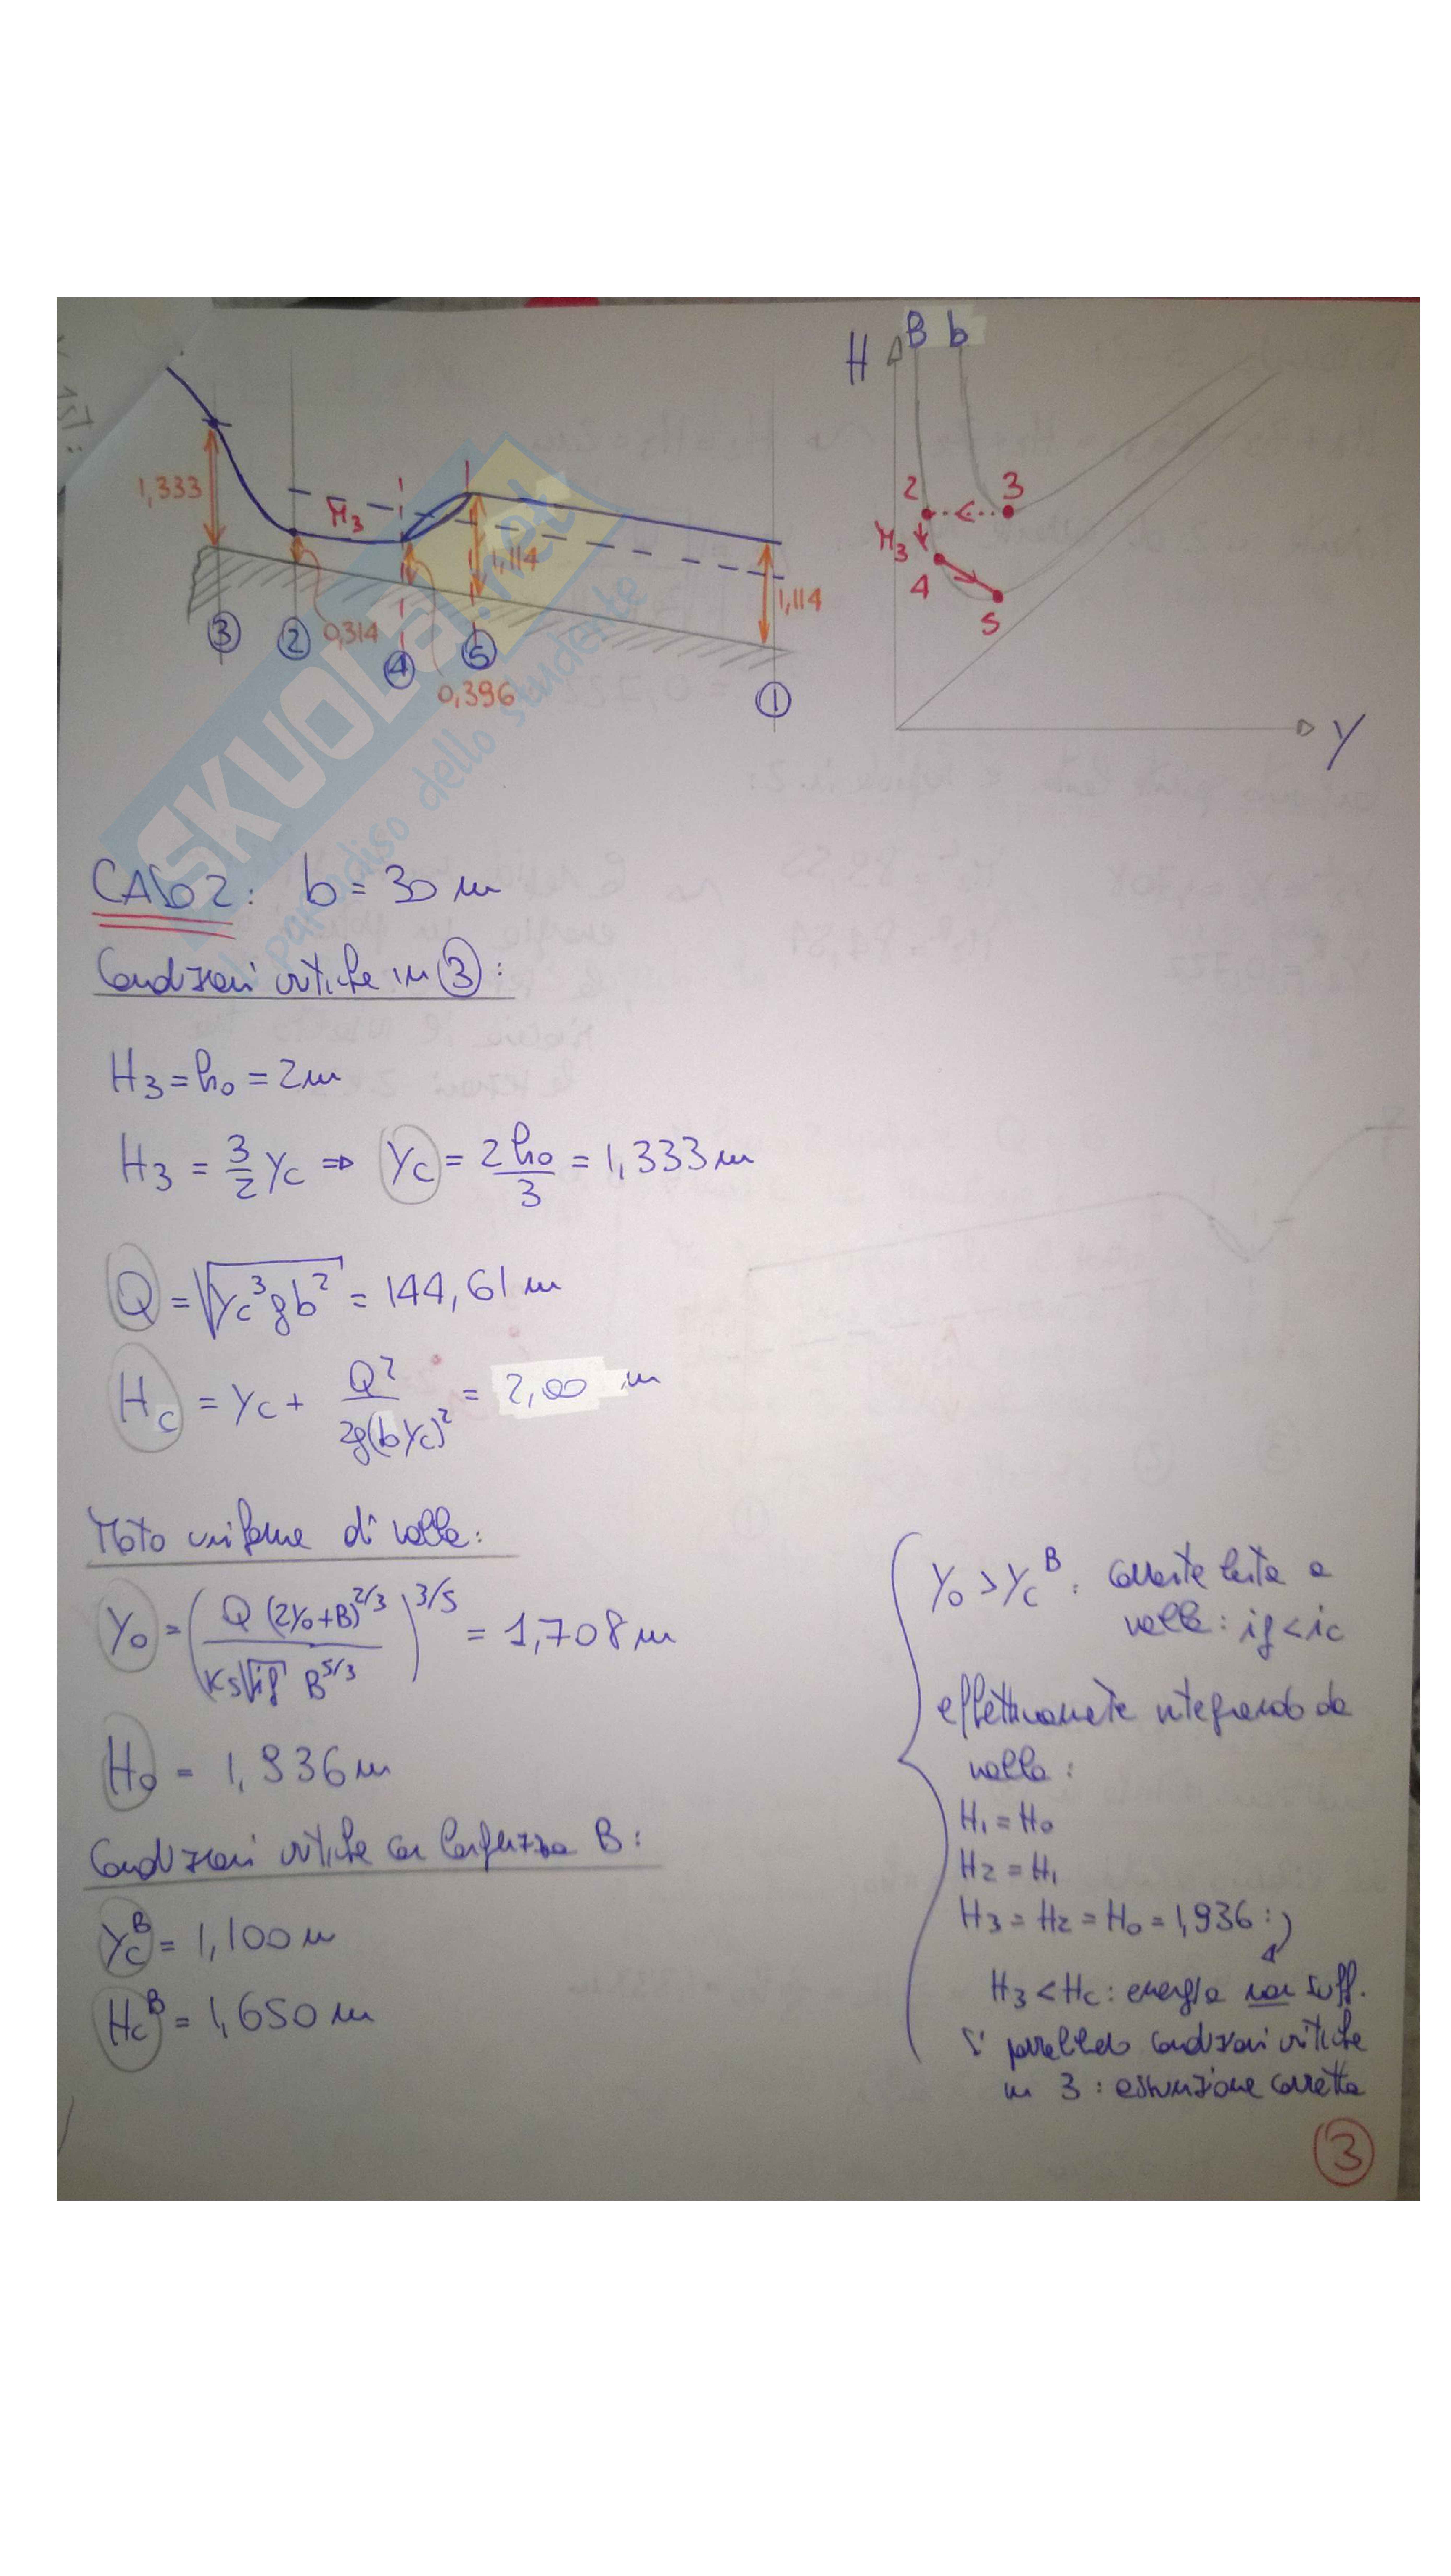 H B b
1,333
M3
1,114
1,114
0,314
0,396
3 2 4 5 1
2 3
M3
4
5
Y
SKUOLA.net
il paradiso dello studente
CASO 2: b = 30 m
Condizioni critiche in 3:
H3 = h0 = 2m
H3 = 3/2 Yc ⇒ Yc = 2h0/3 = 1,333 m
Q = √(Yc³ g b²) = 144,61 m
Hc = Yc + Q²/(2g(bYc)²) = 2,00 m
Moto uniforme di valle:
Y0 = (Q (2Y0+B)^2/3 / (Ks √if B^5/3))^3/5 = 1,708 m
H0 = 1,936 m
Condizioni critiche con larghezza B:
Yc^B = 1,100 m
Hc^B = 1,650 m
Y0 > Yc^B : corrente lenta a
valle : if < ic
effettivamente integrando da
valle :
H1 = H0
H2 = H1
H3 = H2 = H0 = 1,936 :
H3 < Hc : energia non suff.
Si condizioni critiche
in 3 : assunzione corretta
3